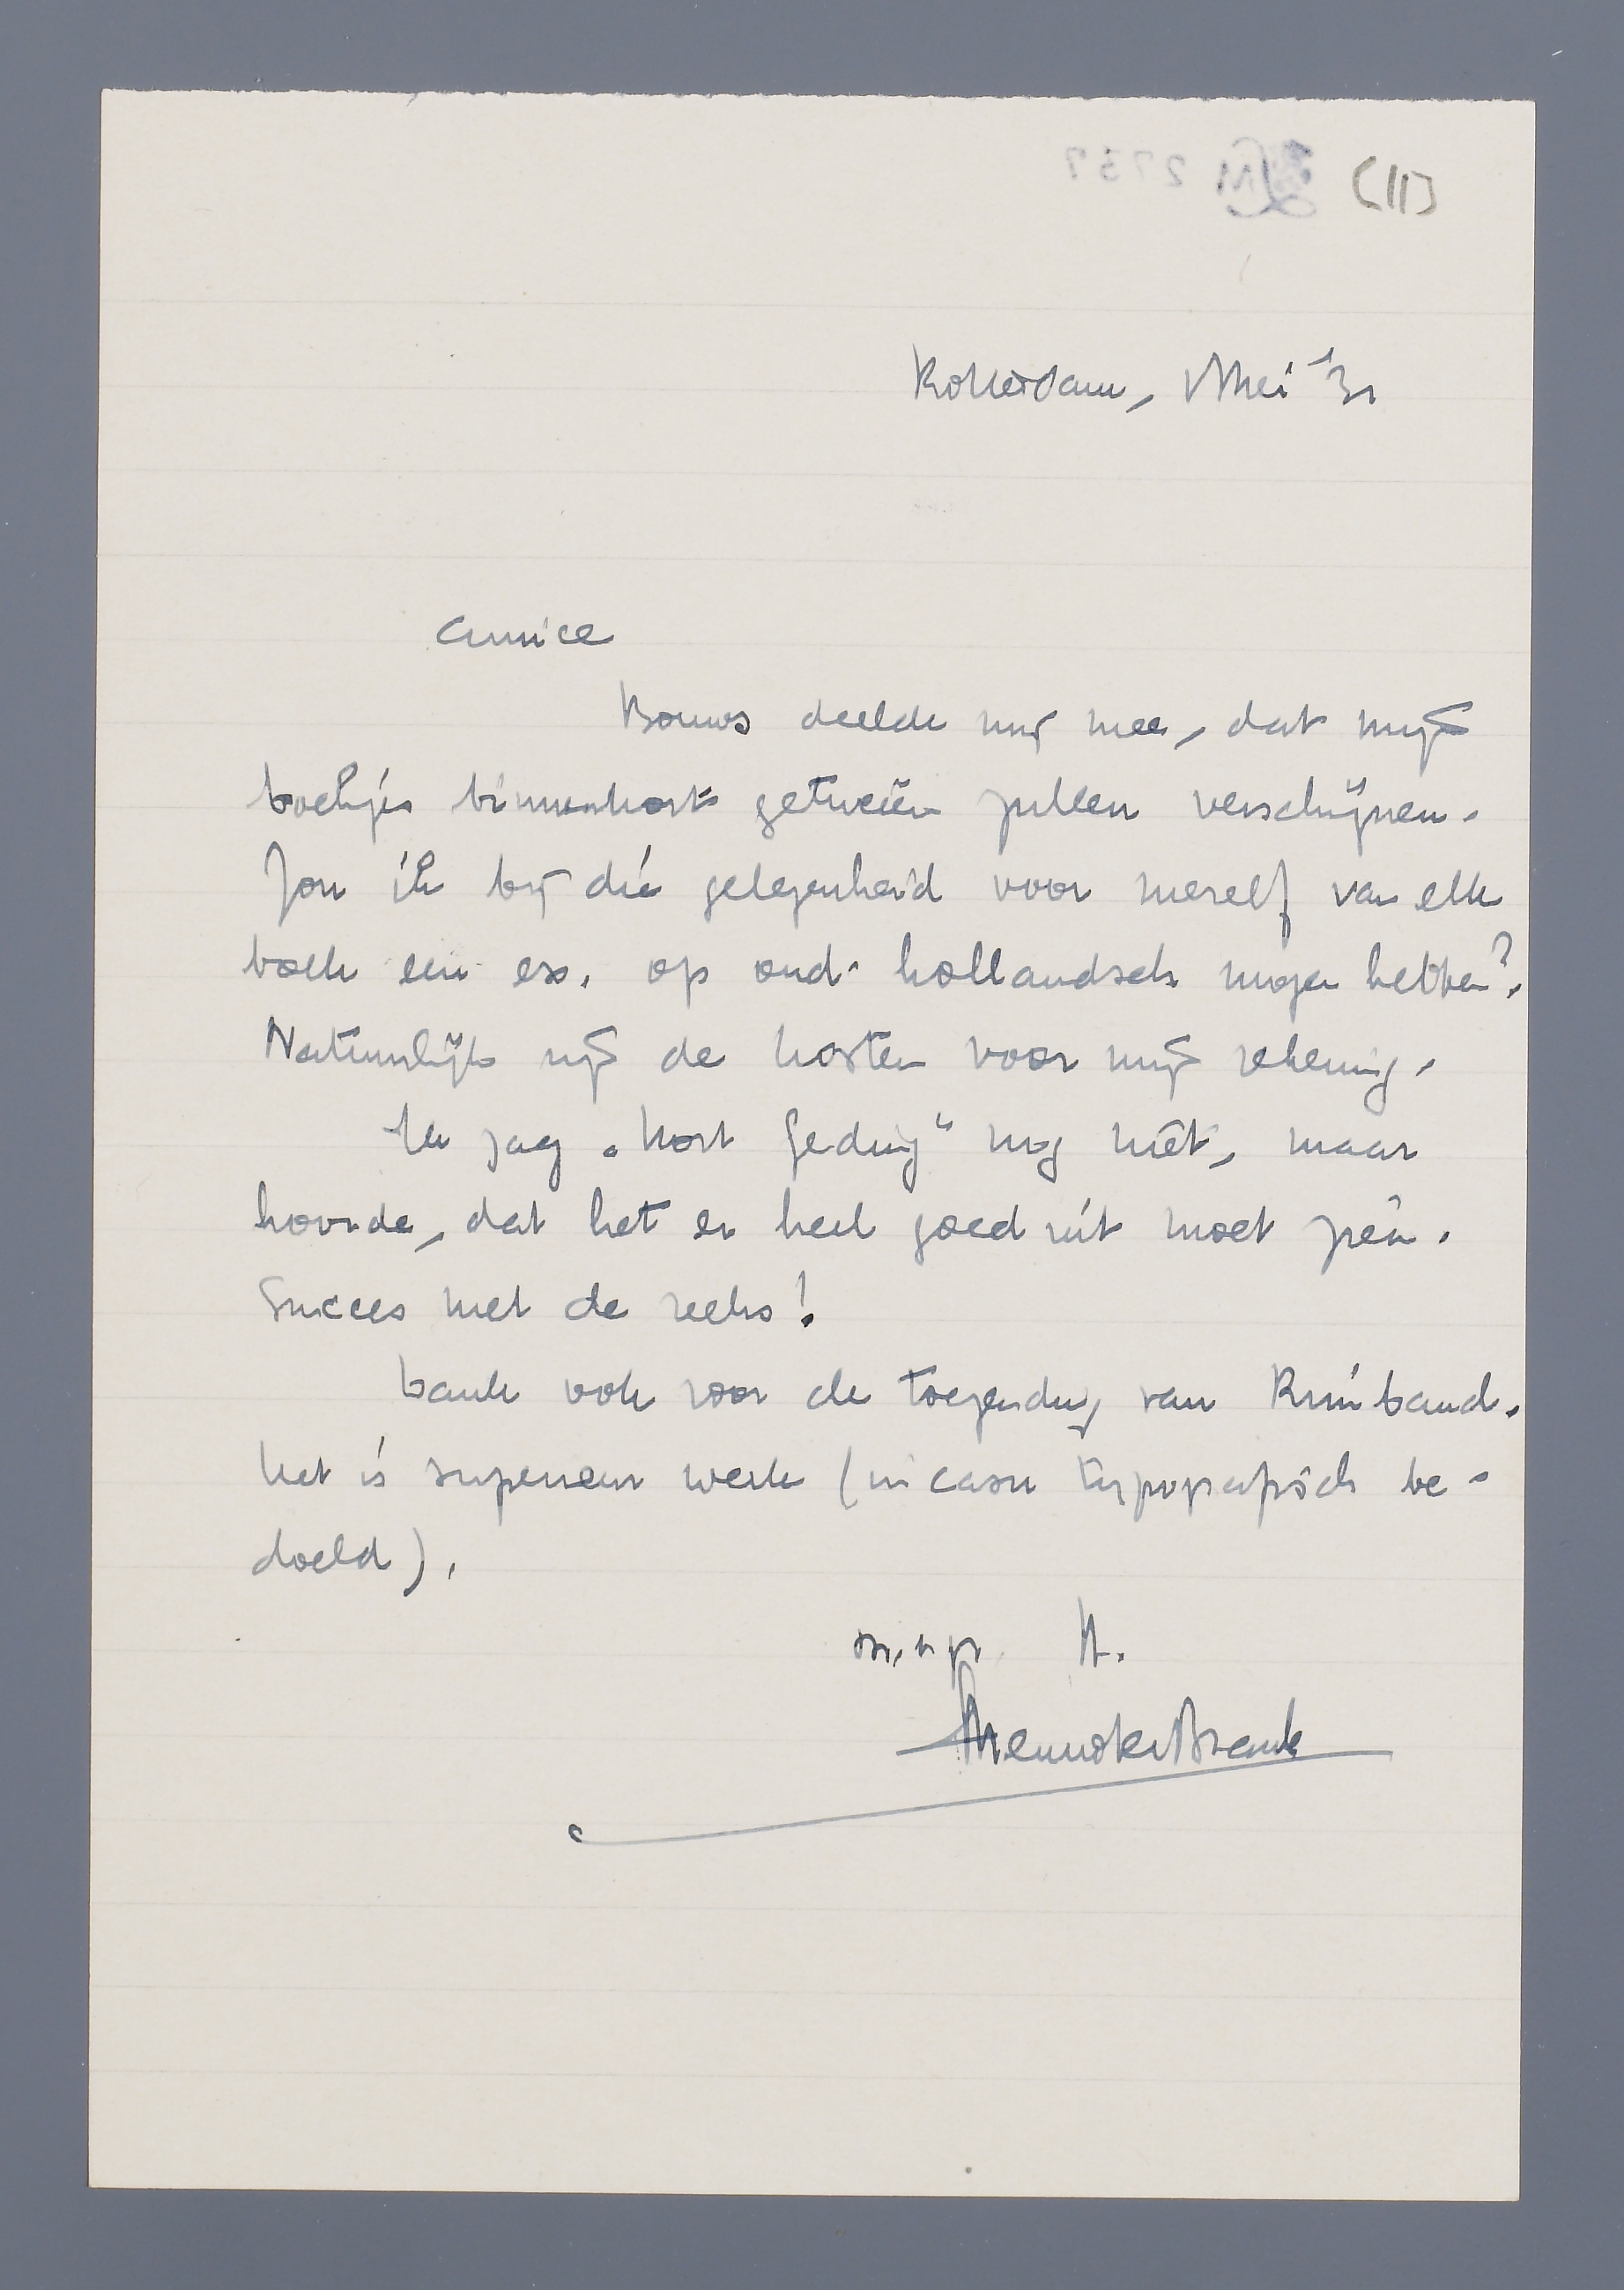 (11)
Rotterdam, Mei '31
Amice
Bouws deelde mij mee, dat mijn
boekjes binnenkort getweeën zullen verschijnen.
Zou ik bij die gelegenheid voor mezelf van elk
boek een ex. op oud-hollandsch mogen hebben?
Natuurlijk zijn de kosten voor mijn rekening.
Ik zag „Kort Geding" nog niet, maar
hoorde, dat het er heel goed uit moet zien.
Succes met de reeks!
Dank ook voor de toezending van Rimbaud.
Het is superieur werk (in casu typografisch be-
doeld).
m. n. gr. tt.
Menno ter Braak